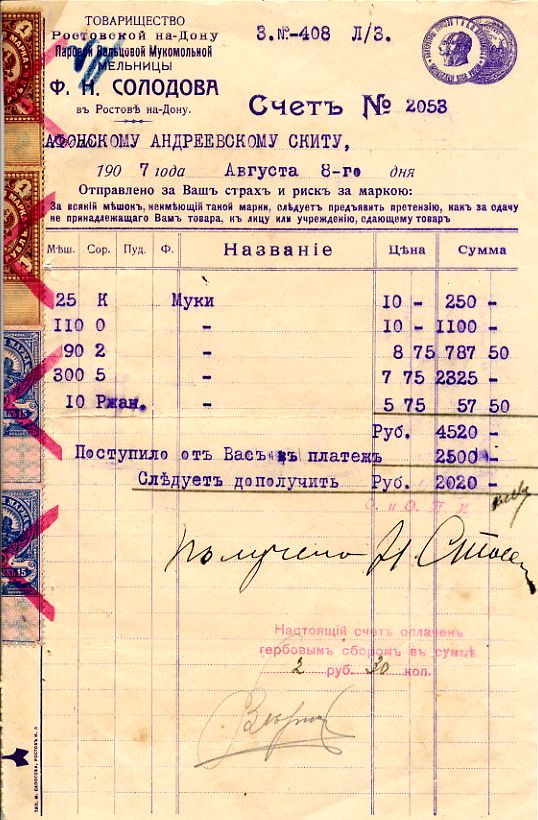 ТОВАРИЩЕСТВО
Ростовской на-Дону
Паровой Вальцовой Мукомольной
МЕЛЬНИЦЫ
Ф. Н. СОЛОДОВА
въ Ростовѣ на-Дону.
З.№-408 Л/З.
Счетъ № 2053
АФОНСКОМУ АНДРЕЕВСКОМУ СКИТУ,
190 7 года Августа 8-го дня
Отправлено за Вашъ страхъ и рискъ за маркою:
За всякій мѣшокъ, неимѣющій такой марки, слѣдуетъ предъявить протензію, какъ за сдачу
не принадлежащаго Вамъ товара, къ лицу или учрежденію, сдающему товаръ
Мѣш. Сор. Пуд. Ф. Названіе Цѣна Сумма
25 К Муки 10 - 250 -
110 0 - 10 - 1100 -
90 2 - 8 75 787 50
300 5 - 7 75 2325 -
10 Ржан. - 5 75 57 50
Руб. 4520 -
Поступило отъ Васъ въ платежъ 2500 -
Слѣдуетъ дополучить Руб. 2020 -
Получено
Настоящій счетъ оплаченъ
гербовымъ сборомъ въ суммѣ
2 руб. 30 коп.